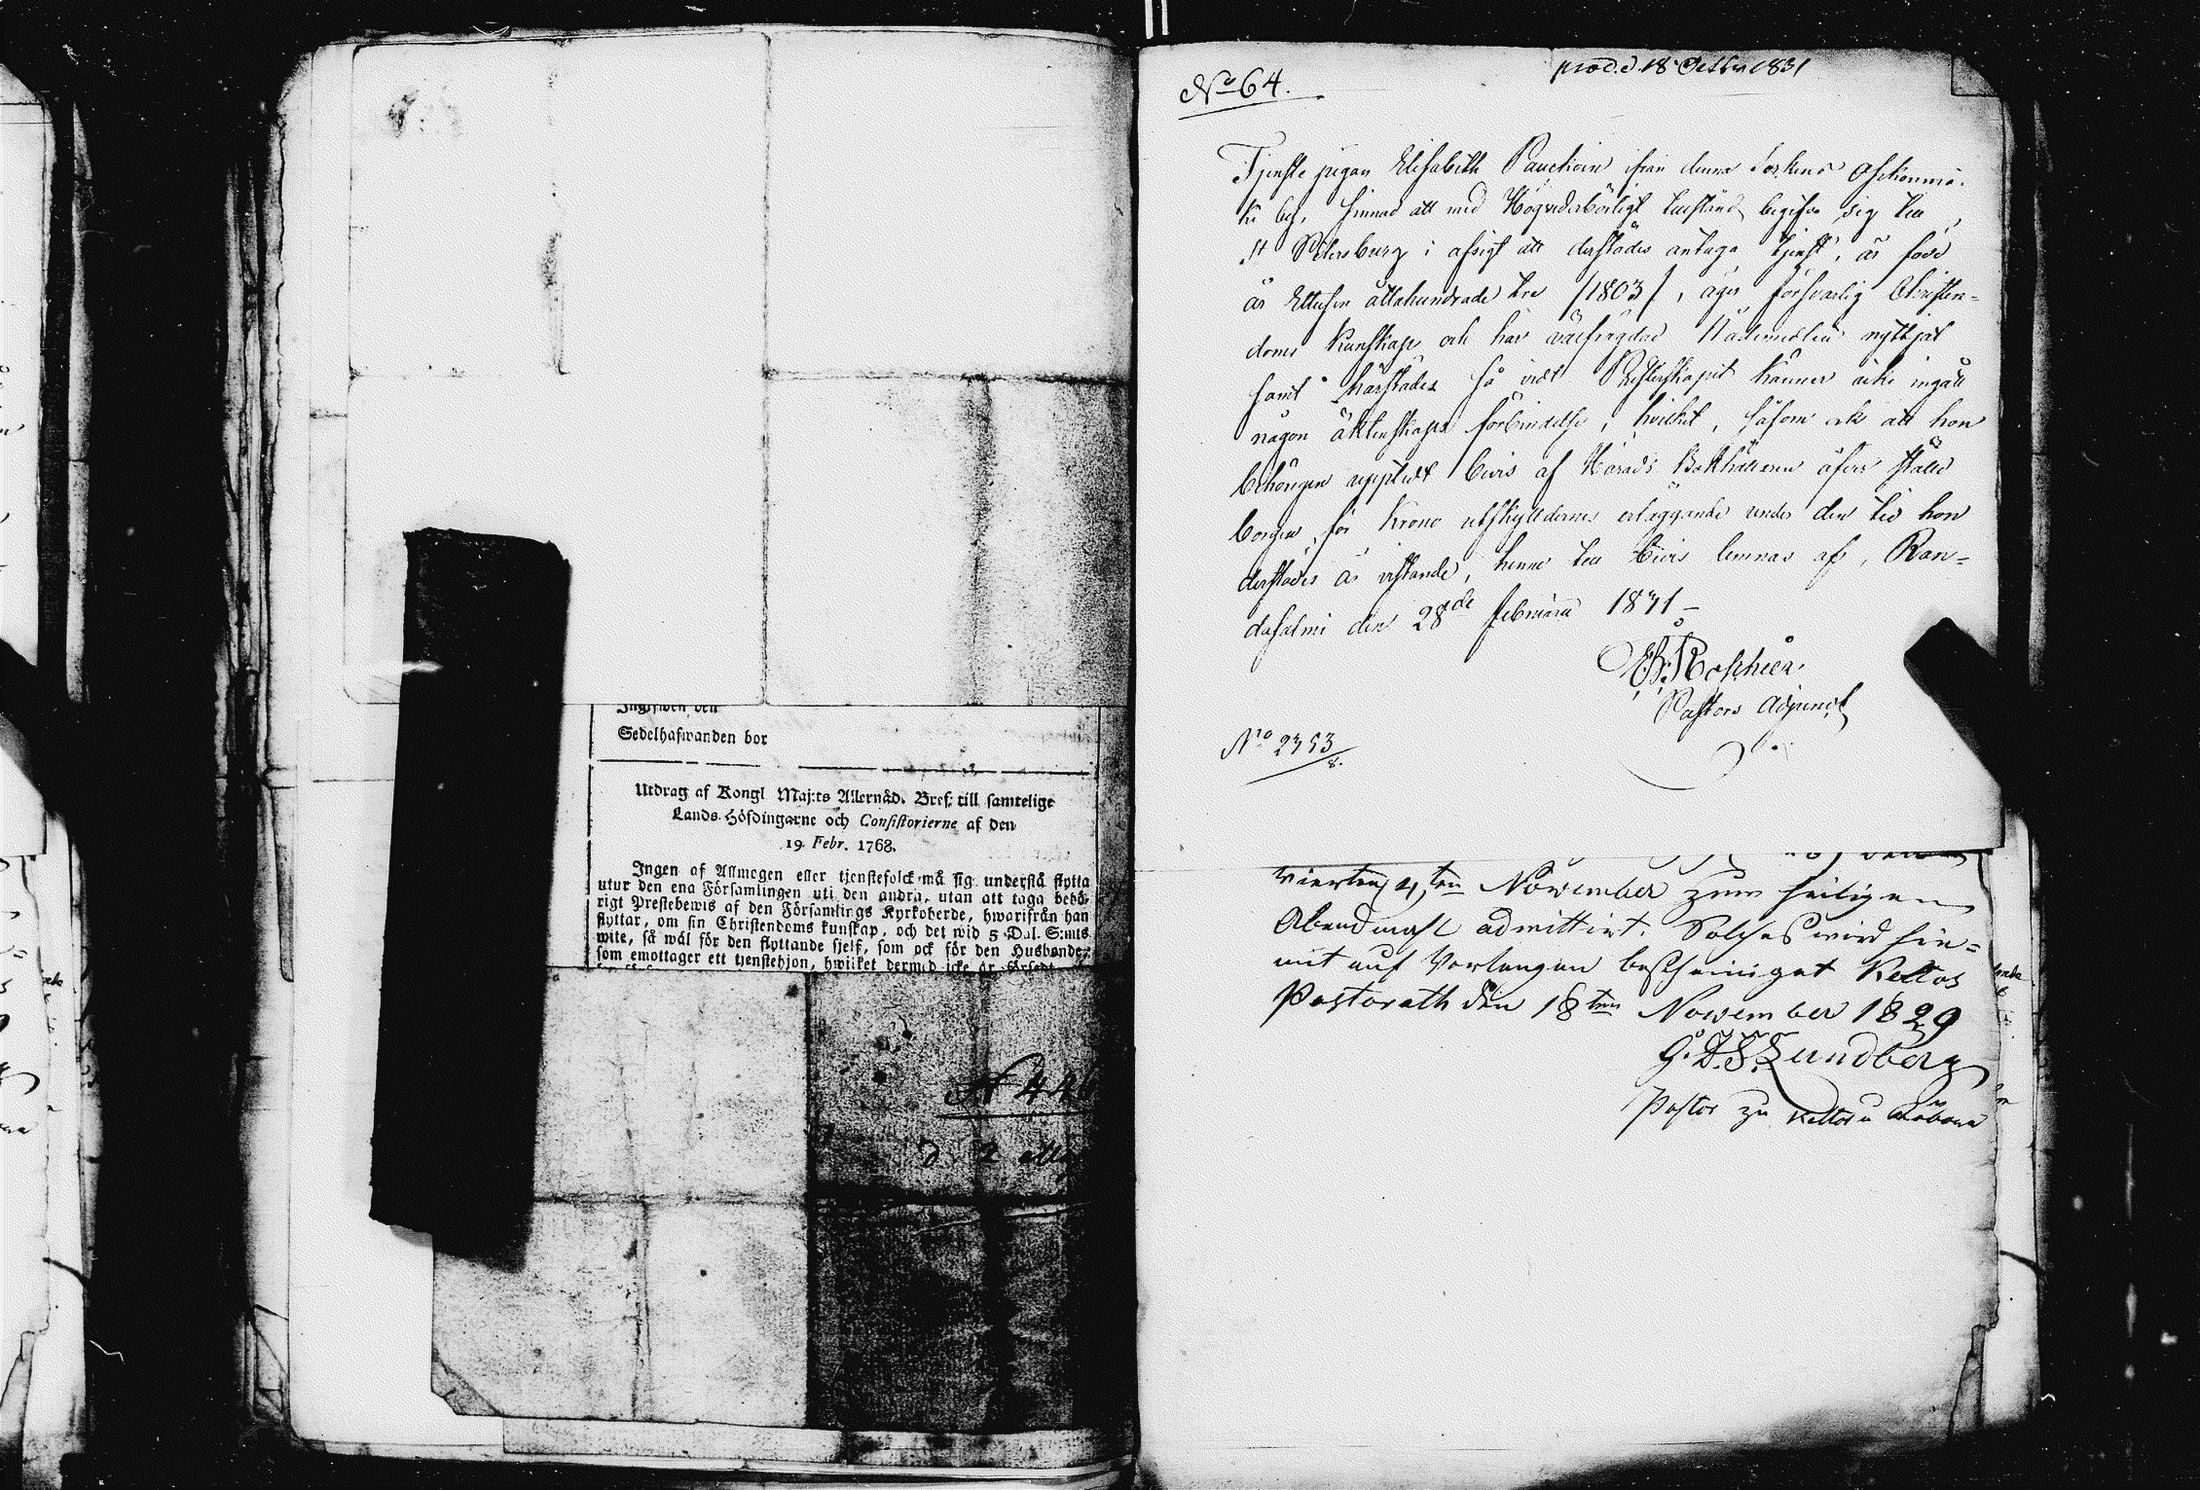 Ingifwen den
Sedelhafwanden bor
Utdrag af Kongl Maj:ts Allernåd. Bref: till samtelige
Lands-Höfdingarne och Consistorierne af den
19. Febr. 1768.
Ingen af Allmogen eller tjenstefolck må sig understå flytta
utur den ena Församlingen uti den andra, utan att taga behö-
rigt Prestebewis af den Församlings Kyrkoherde, hwarifrån han
flyttar, om sin Christendoms kunskap, och det wid 5 Dal. S:mts
wite, så wäl för den flyttande sjelf, som ock för den Husbonde,
som emottager ett tjenstehjon, hwilket dermed icke är försedt
N 446
d. 2
No 64.
prod. d. 18 Octbr 1831
Tjenste pigan Elisabeth Pauchoin ifrån denna Sockens
by, sinnad att med Högvederbörligt tillstånd begifva sig till
St Petersburg i afsigt att derstädes antaga tjenst, är född
år Ettusen åttahundrade tre /1803/, äger försvarlig Christen-
doms kunskap och har välfrägdad Nådemedlen nyttjat
samt härstädes så vidt Presterskapet känner icke ingått
någon äktenskaps förbindelse; hvilket, såsom ock att hon
behörigen uppteedt bevis af Härads Bokhållaren öfver ställd
borgen för Krono utskyldernes erläggande under den tid hon
derstädes är vistande, henne till bevis lemnas af, Ran-
dasalmi den 28de Februarii 1831 –
Pastors Adjunct
No 2353
8.
November zum heiligen
Abendmahl admittirt. Solches wird hie-
mit auf Verlangen bescheiniget Keltos
Pastorath den 18ten November 1829
G. F. S. Lundberg
Pastor zu Keltos u Räbova